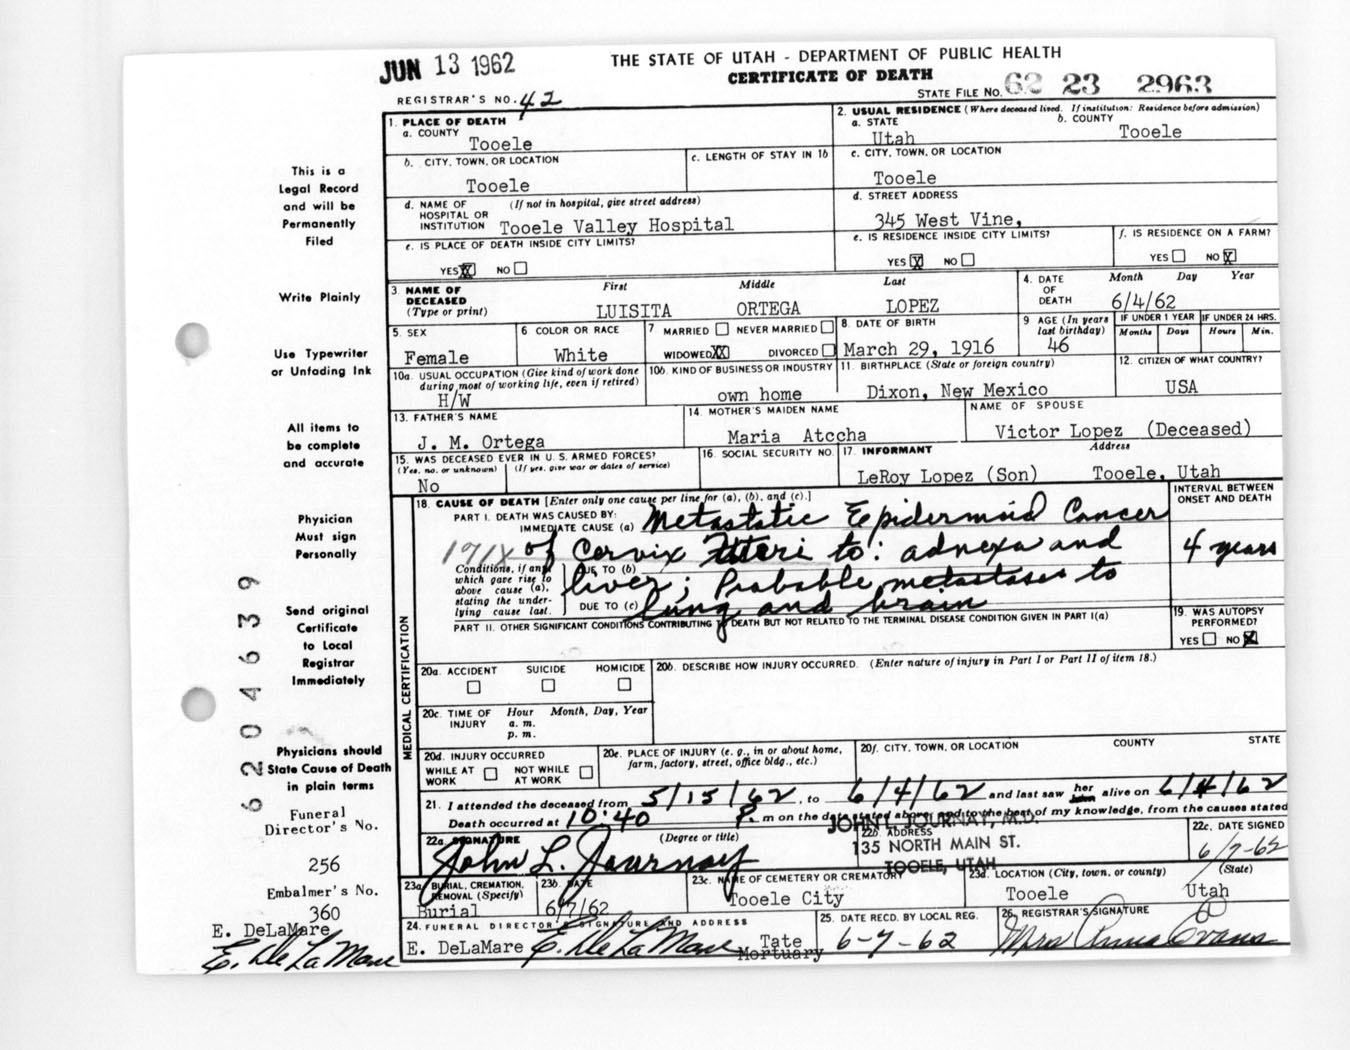 JUN 13 1962
THE STATE OF UTAH - DEPARTMENT OF PUBLIC HEALTH
CERTIFICATE OF DEATH
REGISTRAR'S NO. 42
STATE FILE NO. 62 23 2963
1. PLACE OF DEATH
a. COUNTY
Tooele
2. USUAL RESIDENCE (Where deceased lived. If institution: Residence before admission)
a. STATE
Utah
b. COUNTY
Tooele
b. CITY, TOWN, OR LOCATION
Tooele
c. LENGTH OF STAY IN 1b
c. CITY, TOWN, OR LOCATION
Tooele
d. NAME OF HOSPITAL OR INSTITUTION
(If not in hospital, give street address)
Tooele Valley Hospital
d. STREET ADDRESS
345 West Vine,
e. IS PLACE OF DEATH INSIDE CITY LIMITS?
YES X NO
e. IS RESIDENCE INSIDE CITY LIMITS?
YES X NO
f. IS RESIDENCE ON A FARM?
YES NO X
3. NAME OF DECEASED (Type or print)
First Middle Last
LUISITA ORTEGA LOPEZ
4. DATE OF DEATH
Month Day Year
6/4/62
5. SEX
Female
6 COLOR OR RACE
White
7 MARRIED NEVER MARRIED
WIDOWED XX DIVORCED
8. DATE OF BIRTH
March 29, 1916
9 AGE (In years last birthday)
46
IF UNDER 1 YEAR
Months Days
IF UNDER 24 HRS.
Hours Min.
10a. USUAL OCCUPATION (Give kind of work done during most of working life, even if retired)
H/W
10b. KIND OF BUSINESS OR INDUSTRY
own home
11. BIRTHPLACE (State or foreign country)
Dixon, New Mexico
12. CITIZEN OF WHAT COUNTRY?
USA
13. FATHER'S NAME
J. M. Ortega
14. MOTHER'S MAIDEN NAME
Maria Atccha
NAME OF SPOUSE
Victor Lopez (Deceased)
15. WAS DECEASED EVER IN U. S. ARMED FORCES?
(Yes, no, or unknown) (If yes, give war or dates of service)
No
16. SOCIAL SECURITY NO.
17. INFORMANT Address
LeRoy Lopez (Son) Tooele, Utah
18. CAUSE OF DEATH [Enter only one cause per line for (a), (b), and (c).]
INTERVAL BETWEEN ONSET AND DEATH
PART I. DEATH WAS CAUSED BY:
IMMEDIATE CAUSE (a) Metastatic Epidermoid Cancer
171X of Cervix Uteri to: adnexa and
4 years
Conditions, if any, which gave rise to above cause (a), stating the underlying cause last.
DUE TO (b)
liver; Probable metastases to
DUE TO (c)
lung and brain
PART II. OTHER SIGNIFICANT CONDITIONS CONTRIBUTING TO DEATH BUT NOT RELATED TO THE TERMINAL DISEASE CONDITION GIVEN IN PART I(a)
19. WAS AUTOPSY PERFORMED?
YES NO X
MEDICAL CERTIFICATION
20a. ACCIDENT SUICIDE HOMICIDE
20b. DESCRIBE HOW INJURY OCCURRED. (Enter nature of injury in Part I or Part II of item 18.)
20c. TIME OF INJURY
Hour Month, Day, Year
a. m.
p. m.
20d. INJURY OCCURRED
WHILE AT WORK NOT WHILE AT WORK
20e. PLACE OF INJURY (e. g., in or about home, farm, factory, street, office bldg., etc.)
20f. CITY, TOWN, OR LOCATION COUNTY STATE
21. I attended the deceased from 5/15/62, to 6/4/62 and last saw her him alive on 6/4/62
Death occurred at 10:40 P. m on the date stated above, and to the best of my knowledge, from the causes stated
22a. SIGNATURE (Degree or title)
John L. Journay
22b. ADDRESS
JOHN L. JOURNAY, M.D.
135 NORTH MAIN ST.
TOOELE, UTAH
22c. DATE SIGNED
6/7-62
23a. BURIAL, CREMATION, REMOVAL (Specify)
Burial
23b. DATE
6/7/62
23c. NAME OF CEMETERY OR CREMATORY
Tooele City
23d. LOCATION (City, town, or county) (State)
Tooele Utah
24. FUNERAL DIRECTOR'S SIGNATURE AND ADDRESS
E. DeLaMare E. DeLaMare Tate Mortuary
25. DATE RECD. BY LOCAL REG.
6-7-62
26. REGISTRAR'S SIGNATURE
Mrs Anna Evans
This is a
Legal Record
and will be
Permanently
Filed
Write Plainly
Use Typewriter
or Unfading Ink
All items to
be complete
and accurate
Physician
Must sign
Personally
Send original
Certificate
to Local
Registrar
Immediately
Physicians should
State Cause of Death
in plain terms
Funeral
Director's No.
256
Embalmer's No.
360
E. DeLaMare
E. DeLaMare
6204639